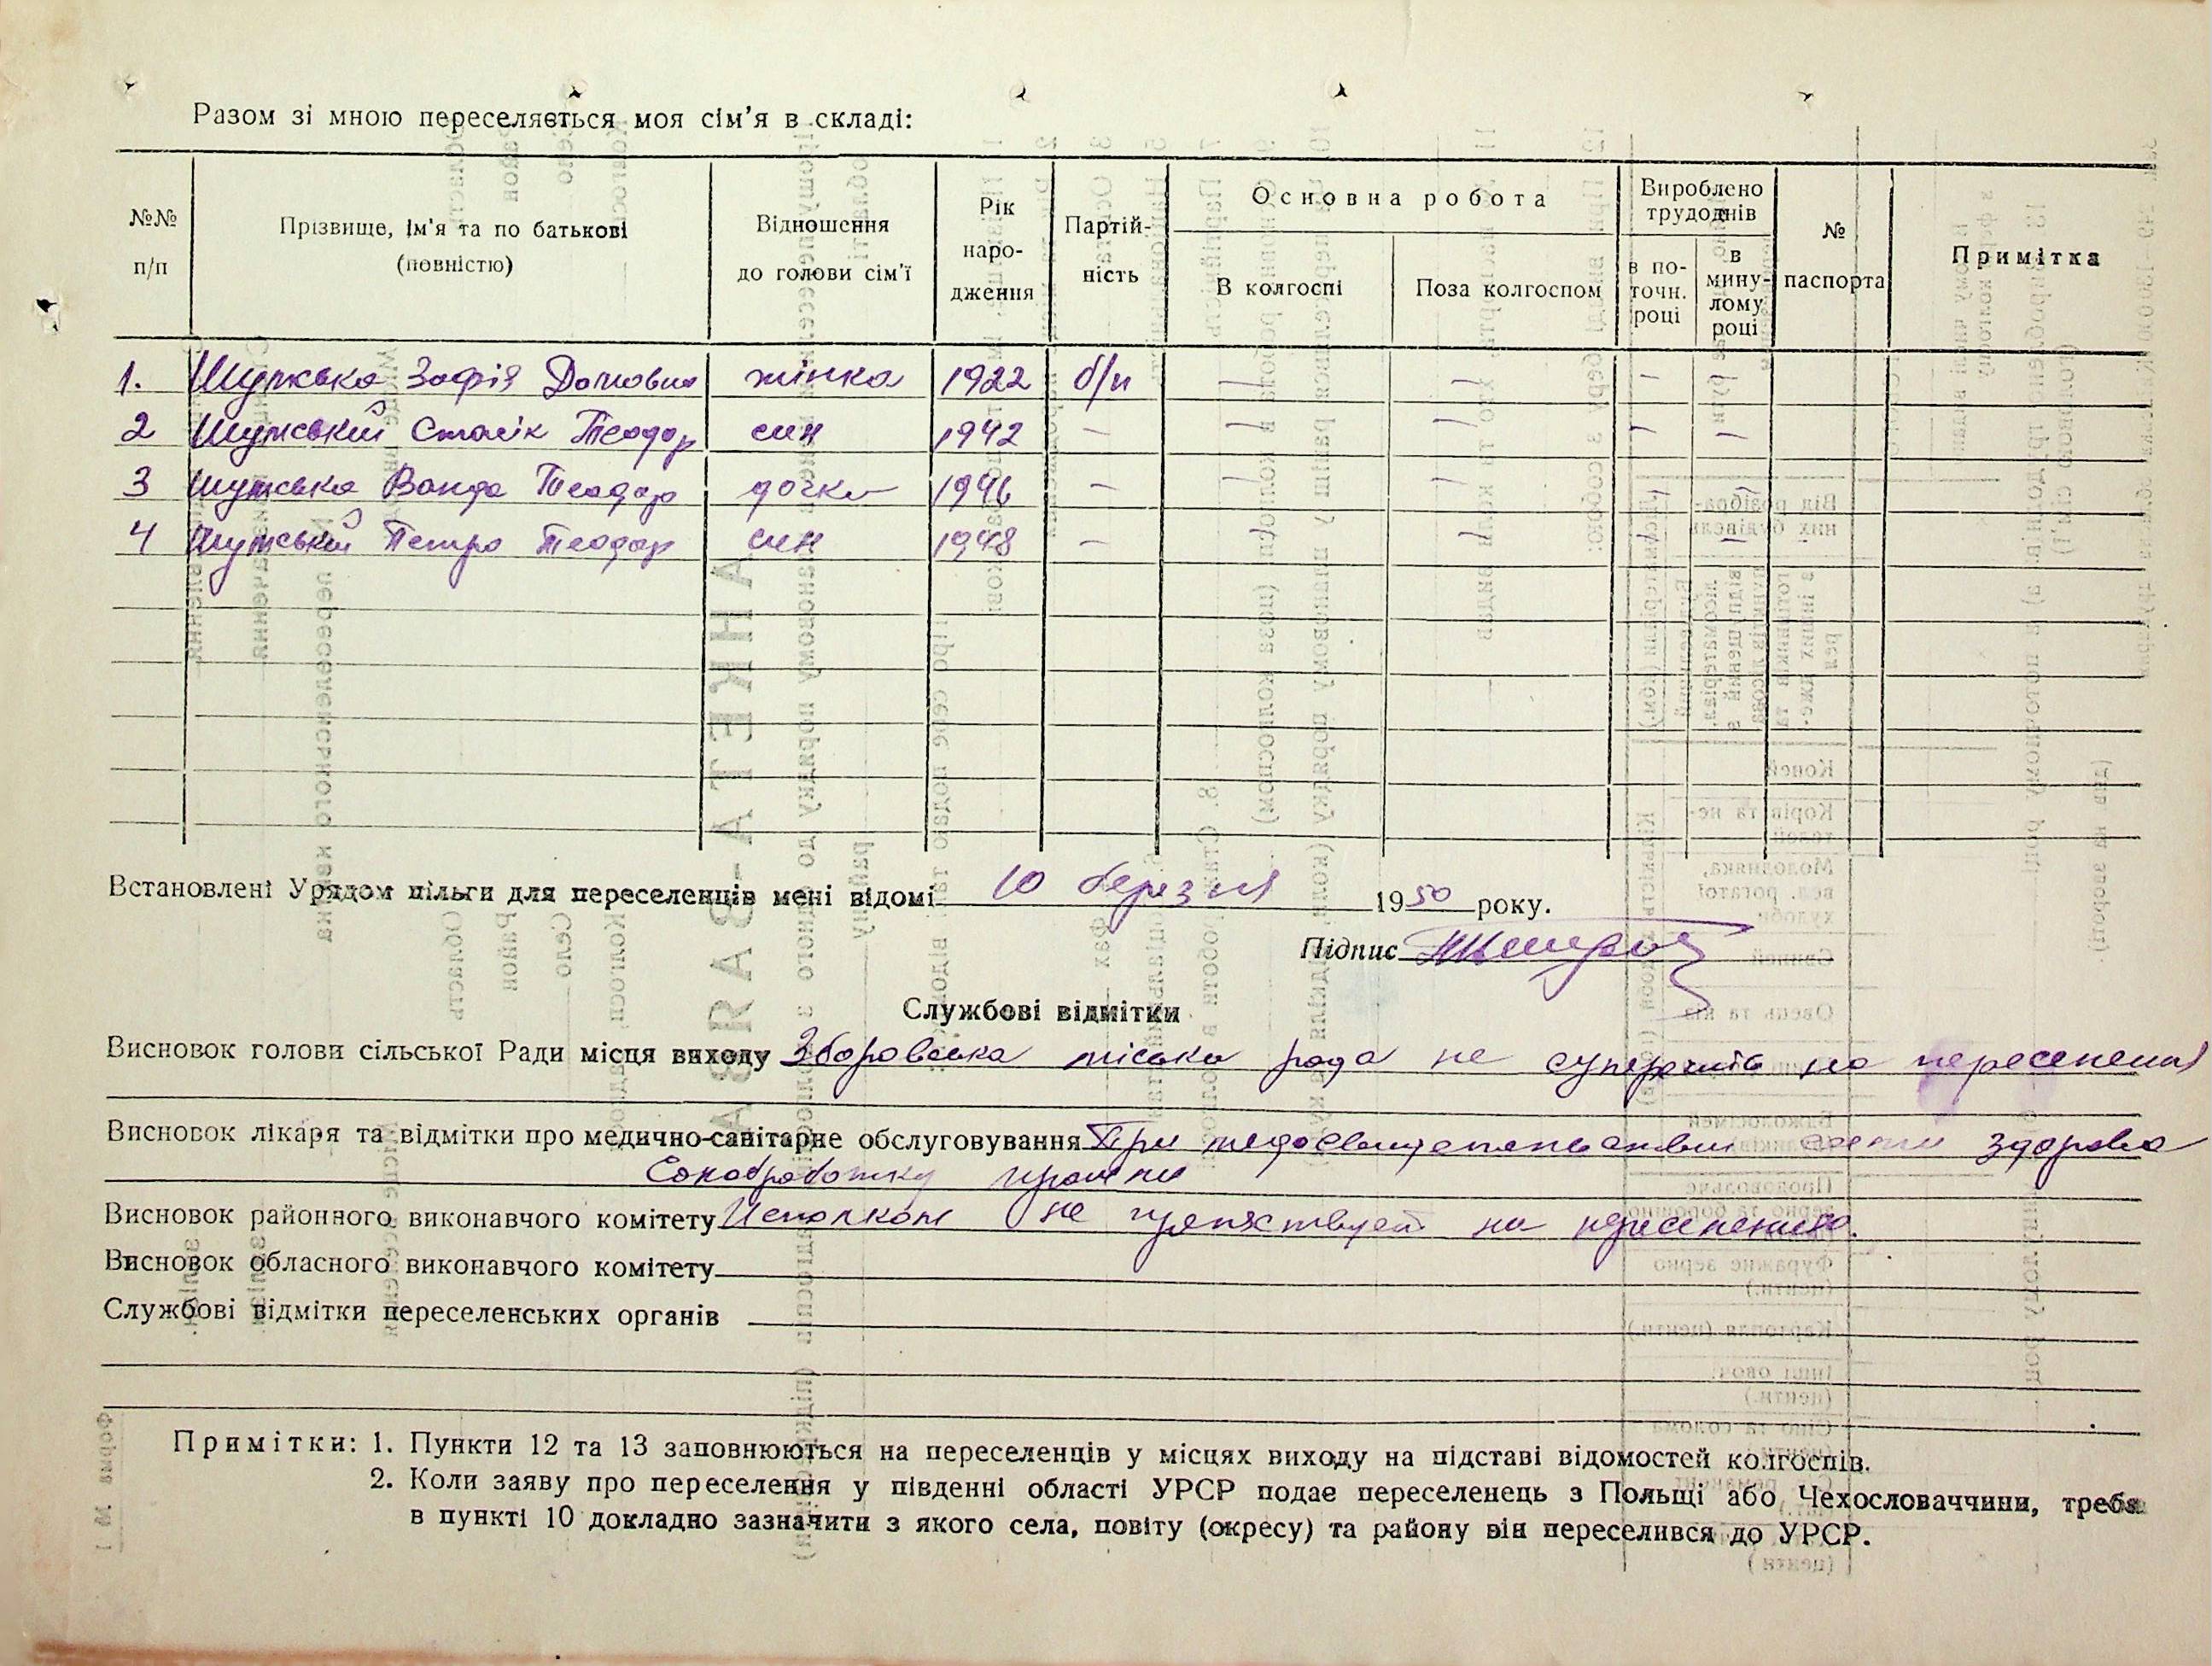 Разом зі мною переселяється моя сім'я в складі:
№№ п/п
Прізвище, ім'я та по батькові (повністю)
Відношення до голови сім'ї
Рік народження
Партійність
Основна робота
В колгоспі
Поза колгоспом
Вироблено трудоднів
в поточн. році
в минулому році
№ паспорта
Примітка
1. Шумська Зофія жінка 1922 б/п — — — —
2 Шумський Сталік Теодор син 1942 — — — — —
3 Шумська Ванда Теодор дочка 1946 — — — — —
4 Шумський Петро Теодор син 1948 — — — — —
Встановлені Урядом пільги для переселенців мені відомі 10 березня 1950 року.
Підпис
Службові відмітки
Висновок голови сільської Ради місця виходу Зборовська міська рада не суперечить на переселення
Висновок лікаря та відмітки про медично-санітарне обслуговування При здорова
Санобработку прошли
Висновок районного виконавчого комітету Исполком не препятствует на переселению.
Висновок обласного виконавчого комітету
Службові відмітки переселенських органів
Примітки: 1. Пункти 12 та 13 заповнюються на переселенців у місцях виходу на підставі відомостей колгоспів.
2. Коли заяву про переселення у південні області УРСР подає переселенець з Польщі або Чехословаччини, треба
в пункті 10 докладно зазначити з якого села, повіту (окресу) та району він переселився до УРСР.